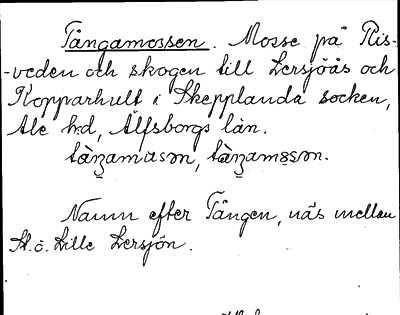 Tångamossen. Mosse på Ris-
-veden och skogen till Lersjöås och
Kopparhult i Skepplanda socken,
Ale h:d, Älfsborgs län.
Namn efter Tången, näs mellan
St. o. Lille Lersjön.